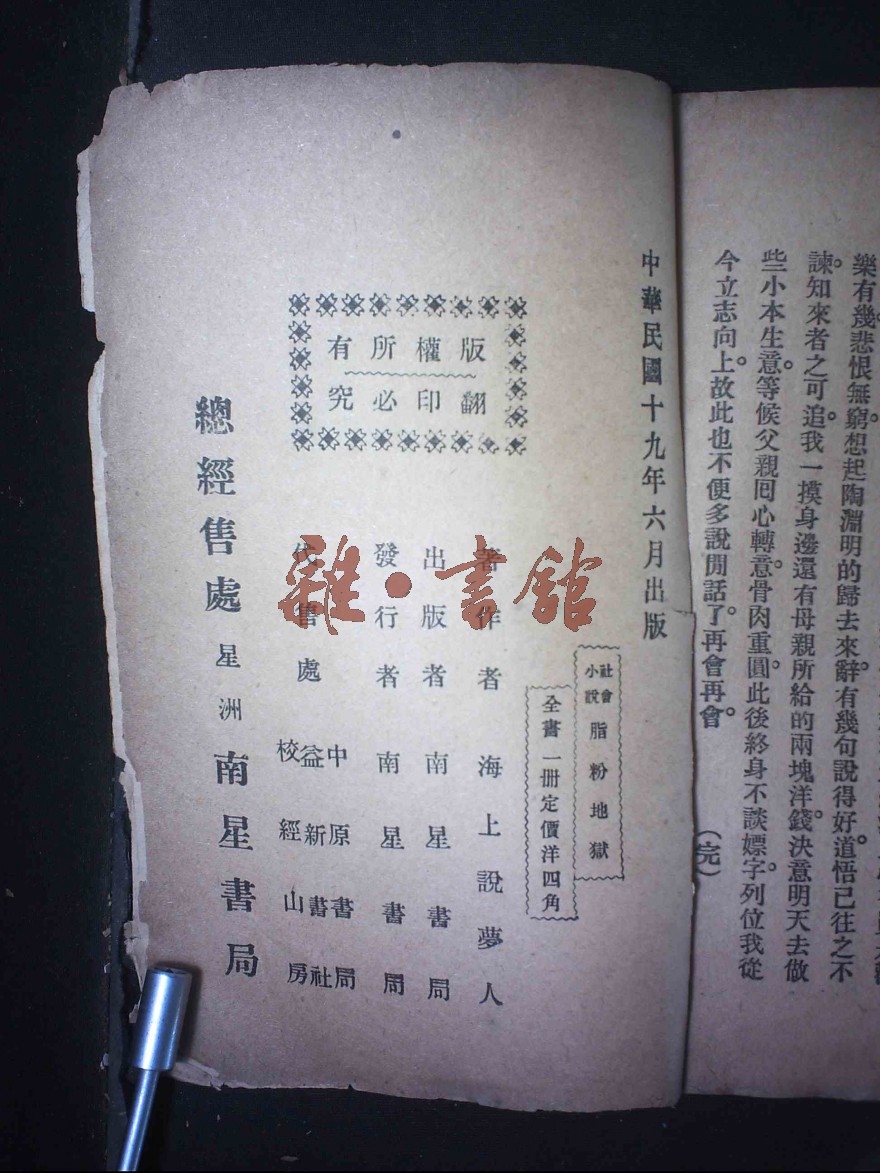 樂有幾悲恨無窮想起陶淵明的歸去來辭有幾句說得好道悟已往之不
諫知來者之可追我一摸身邊還有母親所給的兩塊洋錢決意明天去做
些小本生意等候父親囘心轉意骨肉重圓此後終身不談嫖字列位我從
今立志向上故此也不便多說閒話了再會再會。
(完)
中華民國十九年六月出版
社會小說 脂粉地獄
全書一册定價洋四角
版權所有
翻印必究
著作者 海上說夢人
出版者 南星書局
發行者 南星書局
代售處 中原書局
益新書社
校經山房
總經售處 星洲 南星書局
雜·書館